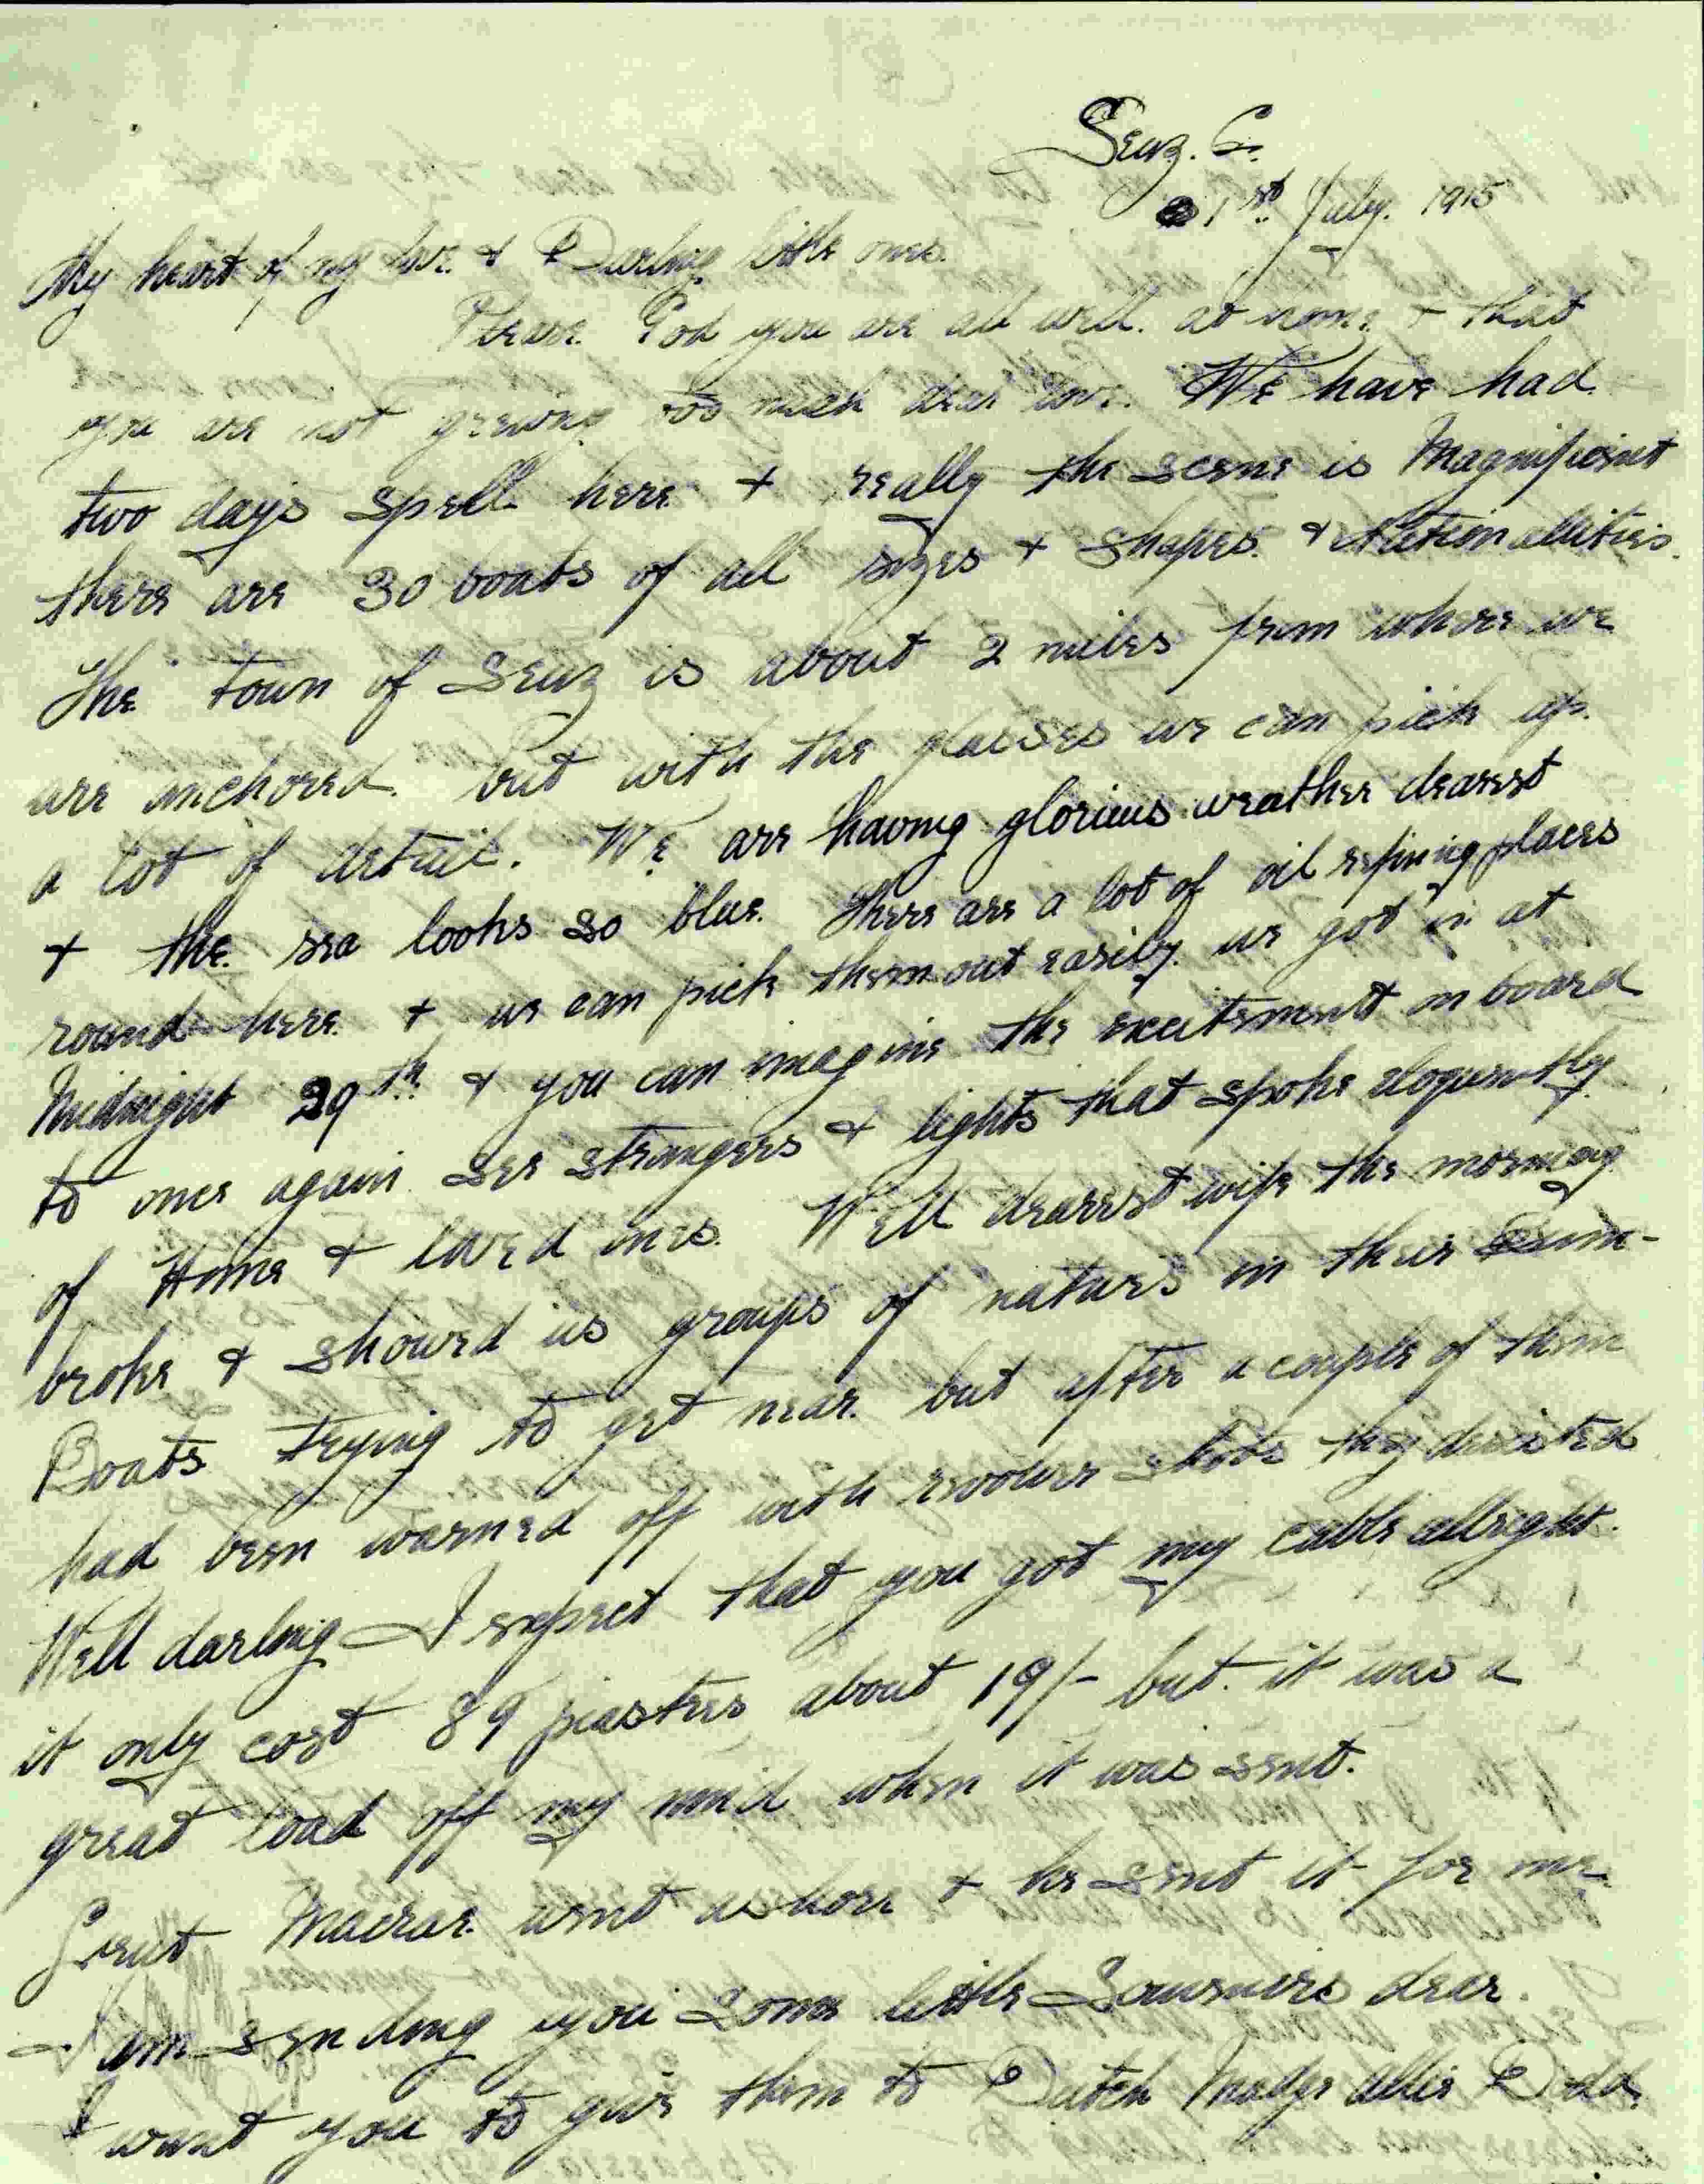 Seuz. C.
1st July. 1915
My heart of my love. & Darling little ones.
Please God you are all well. at home & that
you are not greiving too much dear love. We have had
two days spell here & really the scene is Magnificent
there are 30 boats of all sizes & shapes. & Nationallities.
The town of Seuz is about 2 miles from where we
are anchored. but with the glasses we can pick up
a lot of detail. We are having glorious weather dearest
& the sea looks so blue. There are a lot of oil refining places
round here & we can pick them out easily. we got in at
Midnight 29th & you can imagine the excitement on board
to once again see strangers & lights that spoke eloquently
of Home & loved ones. Well dearest wife the morning
broke & showed us groups of natives in their
Boats trying to get near. but after a couple of them
had been warned off with revolver shots they desisted
Well darling I expect that you got my cable allright.
it only cost 89 piastres about 19/- but. it was a
great load off my mind when it was sent.
Lieut Macrae went ashore & he sent it for me.
I am sending you some little Souvneirs dear.
I want you to give them to Dutch Madge Allie Dad